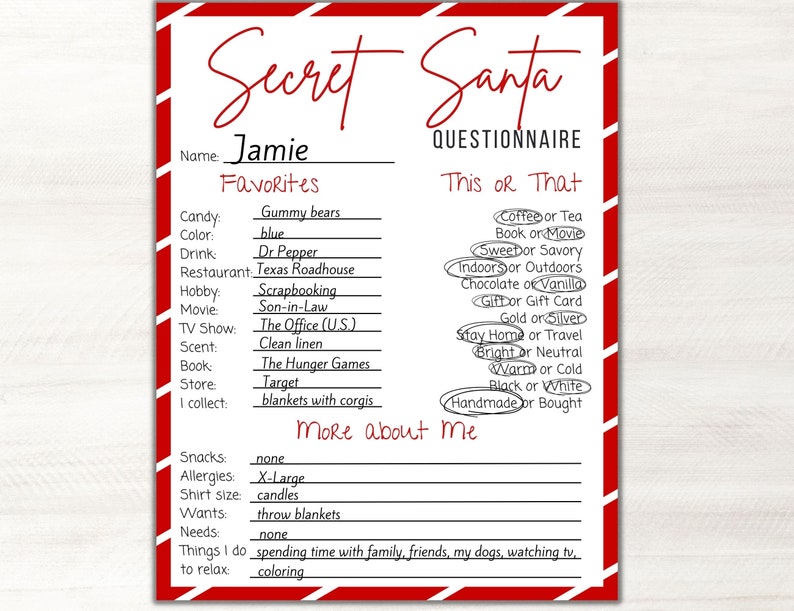 Secret Santa
QUESTIONNAIRE
Name: Jamie
Favorites
Candy: Gummy bears
Color: blue
Drink: Dr Pepper
Restaurant: Texas Roadhouse
Hobby: Scrapbooking
Movie: Son-in-Law
TV Show: The Office (U.S.)
Scent: Clean linen
Book: The Hunger Games
Store: Target
I collect: blankets with corgis
This or That
Coffee or Tea
Book or Movie
Sweet or Savory
Indoors or Outdoors
Chocolate or Vanilla
Gift or Gift Card
Gold or Silver
Stay Home or Travel
Bright or Neutral
Warm or Cold
Black or White
Handmade or Bought
More about Me
Snacks: none
Allergies: X-Large
Shirt size: candles
Wants: throw blankets
Needs: none
Things I do spending time with family, friends, my dogs, watching tv,
to relax: coloring